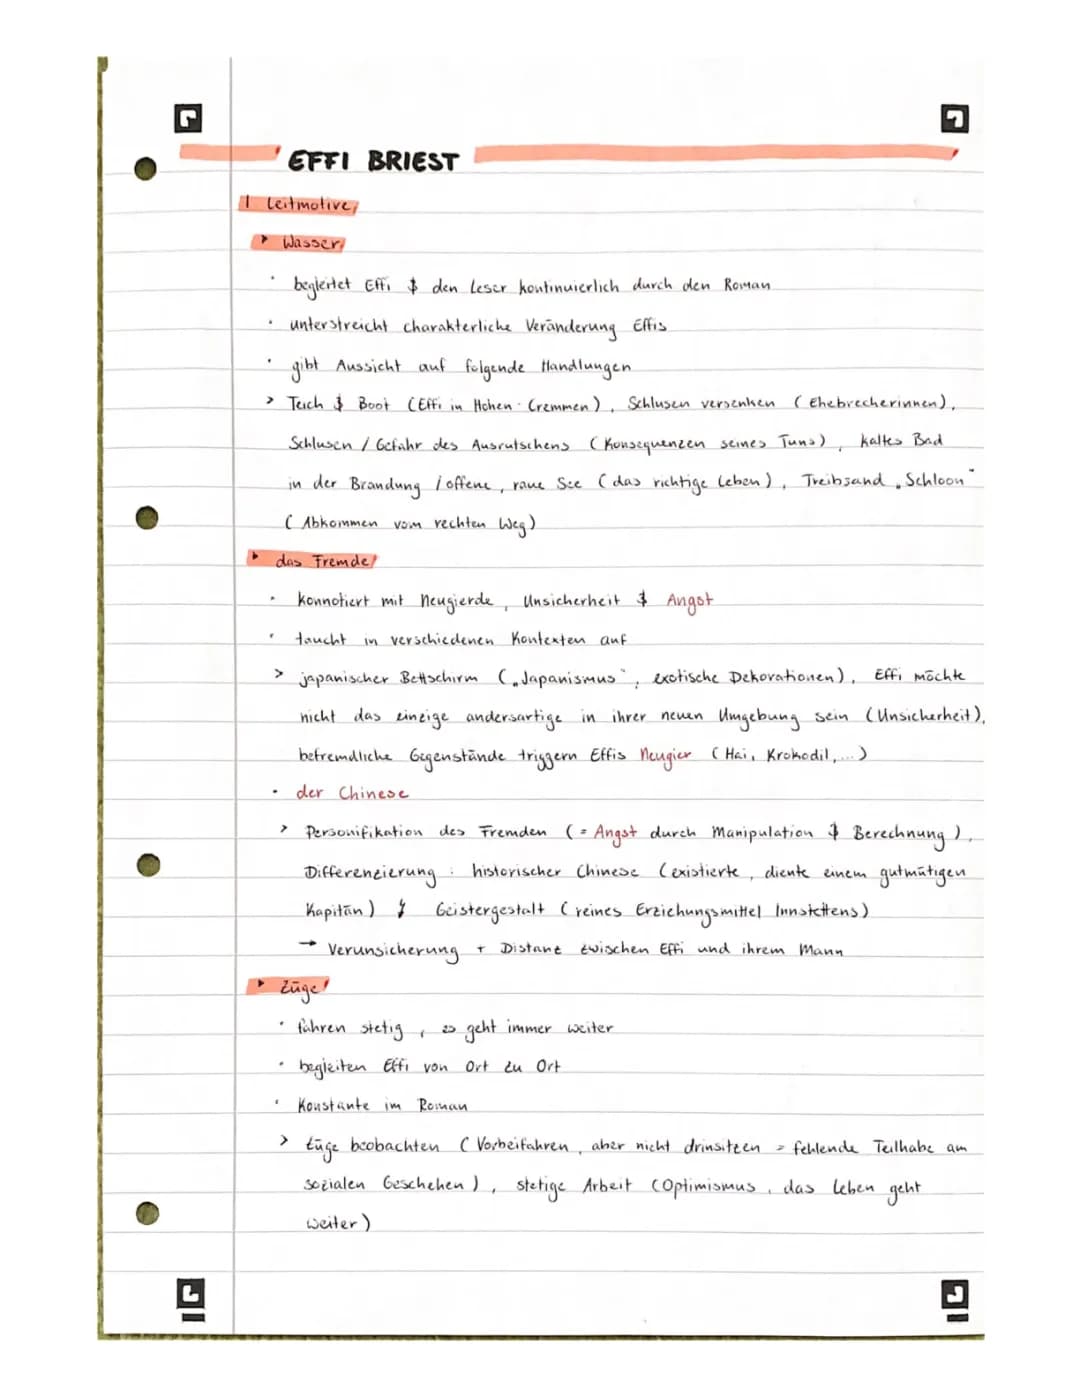 EFFI BRIEST
1 Leitmotive
▸ Wasser
· begleitet Effi & den Leser kontinuierlich durch den Roman
· unterstreicht charakterliche Veränderung Effis
· gibt Aussicht auf folgende Handlungen
> Teich & Boot (Effi in Hohen-Cremmen), Schlusen versenken (Ehebrecherinnen),
Schlusen / Gefahr des Ausrutschens (Konsequenzen seines Tuns), kaltes Bad
in der Brandung / offene, raue See (das richtige Leben), Treibsand „Schloon"
(Abkommen vom rechten Weg)
▸ das Fremde
· konnotiert mit Neugierde, Unsicherheit & Angst
· taucht in verschiedenen Kontexten auf
> japanischer Bettschirm („Japanismus", exotische Dekorationen), Effi möchte
nicht das einzige andersartige in ihrer neuen Umgebung sein (Unsicherheit),
befremdliche Gegenstände triggern Effis Neugier (Hai, Krokodil,...)
· der Chinese
> Personifikation des Fremden (= Angst durch Manipulation & Berechnung),
Differenzierung: historischer Chinese (existierte, diente einem gutmütigen
Kapitän) Geistergestalt (reines Erziehungsmittel Innstettens)
→ Verunsicherung + Distanz zwischen Effi und ihrem Mann
▸ Züge
· fahren stetig, es geht immer weiter
· begleiten Effi von Ort zu Ort
· Konstante im Roman
> Züge beobachten (Vorbeifahren, aber nicht drinsitzen = fehlende Teilhabe am
sozialen Geschehen), stetige Arbeit (Optimismus, das Leben geht
weiter)